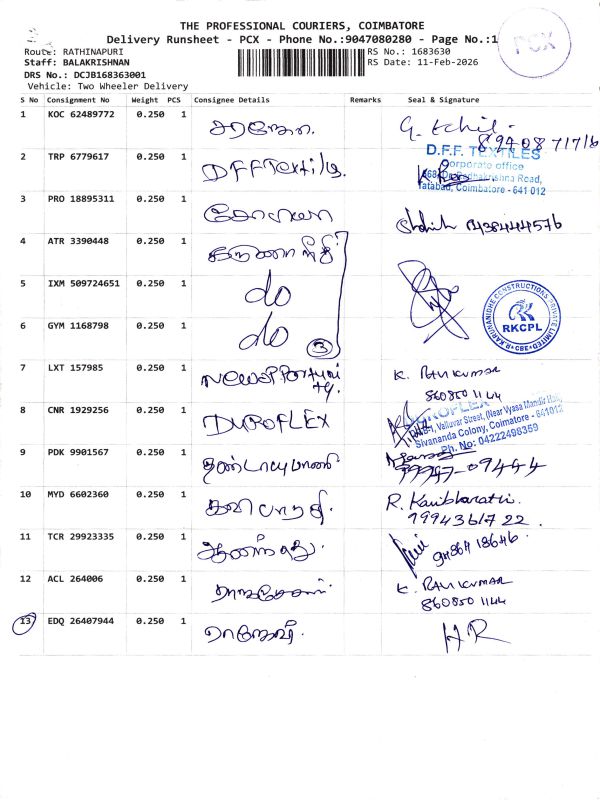 THE PROFESSIONAL COURIERS, COIMBATORE
Delivery Runsheet - PCX - Phone No.:9047080280 - Page No.:1
PCX
Route: RATHINAPURI
RS No.: 1683630
Staff: BALAKRISHNAN
RS Date: 11-Feb-2026
DRS No.: DCJB168363001
Vehicle: Two Wheeler Delivery
S No Consignment No Weight PCS Consignee Details Remarks Seal & Signature
1 KOC 62489772 0.250 1
2 TRP 6779617 0.250 1 DFF Textile.
D.F.F. TEXTILES
Corporate office
Radhakrishna Road,
Tatabad, Coimbatore - 641 012
3 PRO 18895311 0.250 1
4 ATR 3390448 0.250 1 கருணாநிதி
5 IXM 509724651 0.250 1 do
6 GYM 1168798 0.250 1 do
3
KARUNANIDHE CONSTRUCTIONS PRIVATE LIMITED
RKCPL
CBE
7 LXT 157985 0.250 1 K. RAVIKUMAR
860850 1144
8 CNR 1929256 0.250 1 DUROFLEX
DUROFLEX
Valluvar Street, (Near Vyasa Mandir Hall)
Sivananda Colony, Coimatore - 641012
Ph. No: 04222498359
9 PDK 9901567 0.250 1 தண்டாயுதபாணி
99947-09444
10 MYD 6602360 0.250 1 கவி பாரதி. R. Kavibharathi.
7994361722.
11 TCR 29923335 0.250 1
12 ACL 264006 0.250 1 ராஜசேகர் K. RAVIKUMAR
860850 1144
13 EDQ 26407944 0.250 1 ராஜேஷ். HR